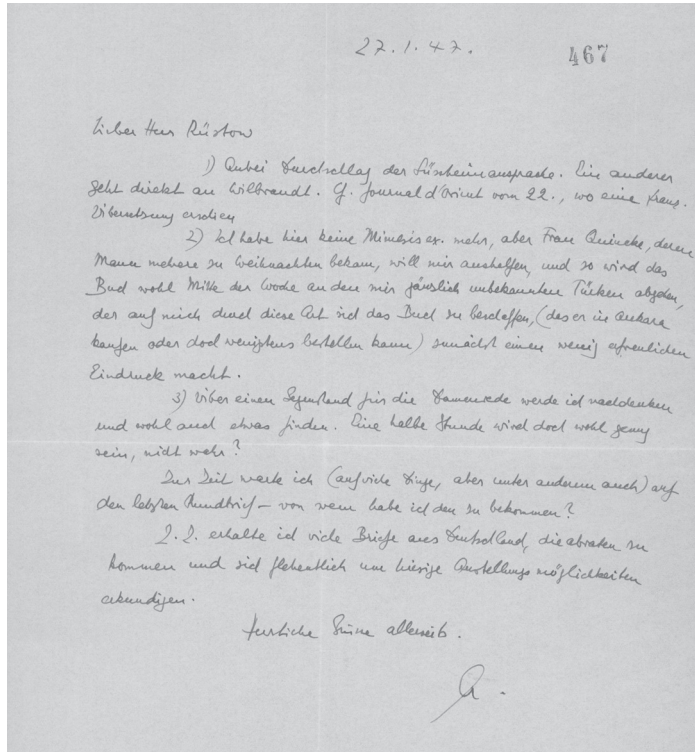 27.1.47.
467
Lieber Herr Rüstow
1) Anbei Durchschlag der Süsheimansprache. Ein anderer
geht direkt an Wilbrandt. Cf. Journal d'Orient vom 22., wo eine franz.
Übersetzung erschien
2) Ich habe hier keine Mimesisex. mehr, aber Frau Quincke, deren
Mann mehrere zu Weihnachten bekam, will mir aushelfen, und so wird das
Buch wohl Mitte der Woche an den mir gänzlich unbekannten Türken abgehen,
der auf mich durch diese Art sich das Buch zu beschaffen, (das er in Ankara
kaufen oder doch wenigstens bestellen kann) zunächst einen wenig erfreulichen
Eindruck macht.
3) Über einen Gegenstand für die Damenrede werde ich nachdenken
und wohl auch etwas finden. Eine halbe Stunde wird doch wohl genug
sein, nicht wahr?
Zur Zeit warte ich (auf viele Dinge, aber unter anderem auch) auf
den letzten Rundbrief – von wem habe ich den zu bekommen?
Z. Z. erhalte ich viele Briefe aus Deutschland, die abraten zu
kommen und sich flehentlich um hiesige Anstellungsmöglichkeiten
erkundigen.
Herzliche Grüsse allerseits.
A.